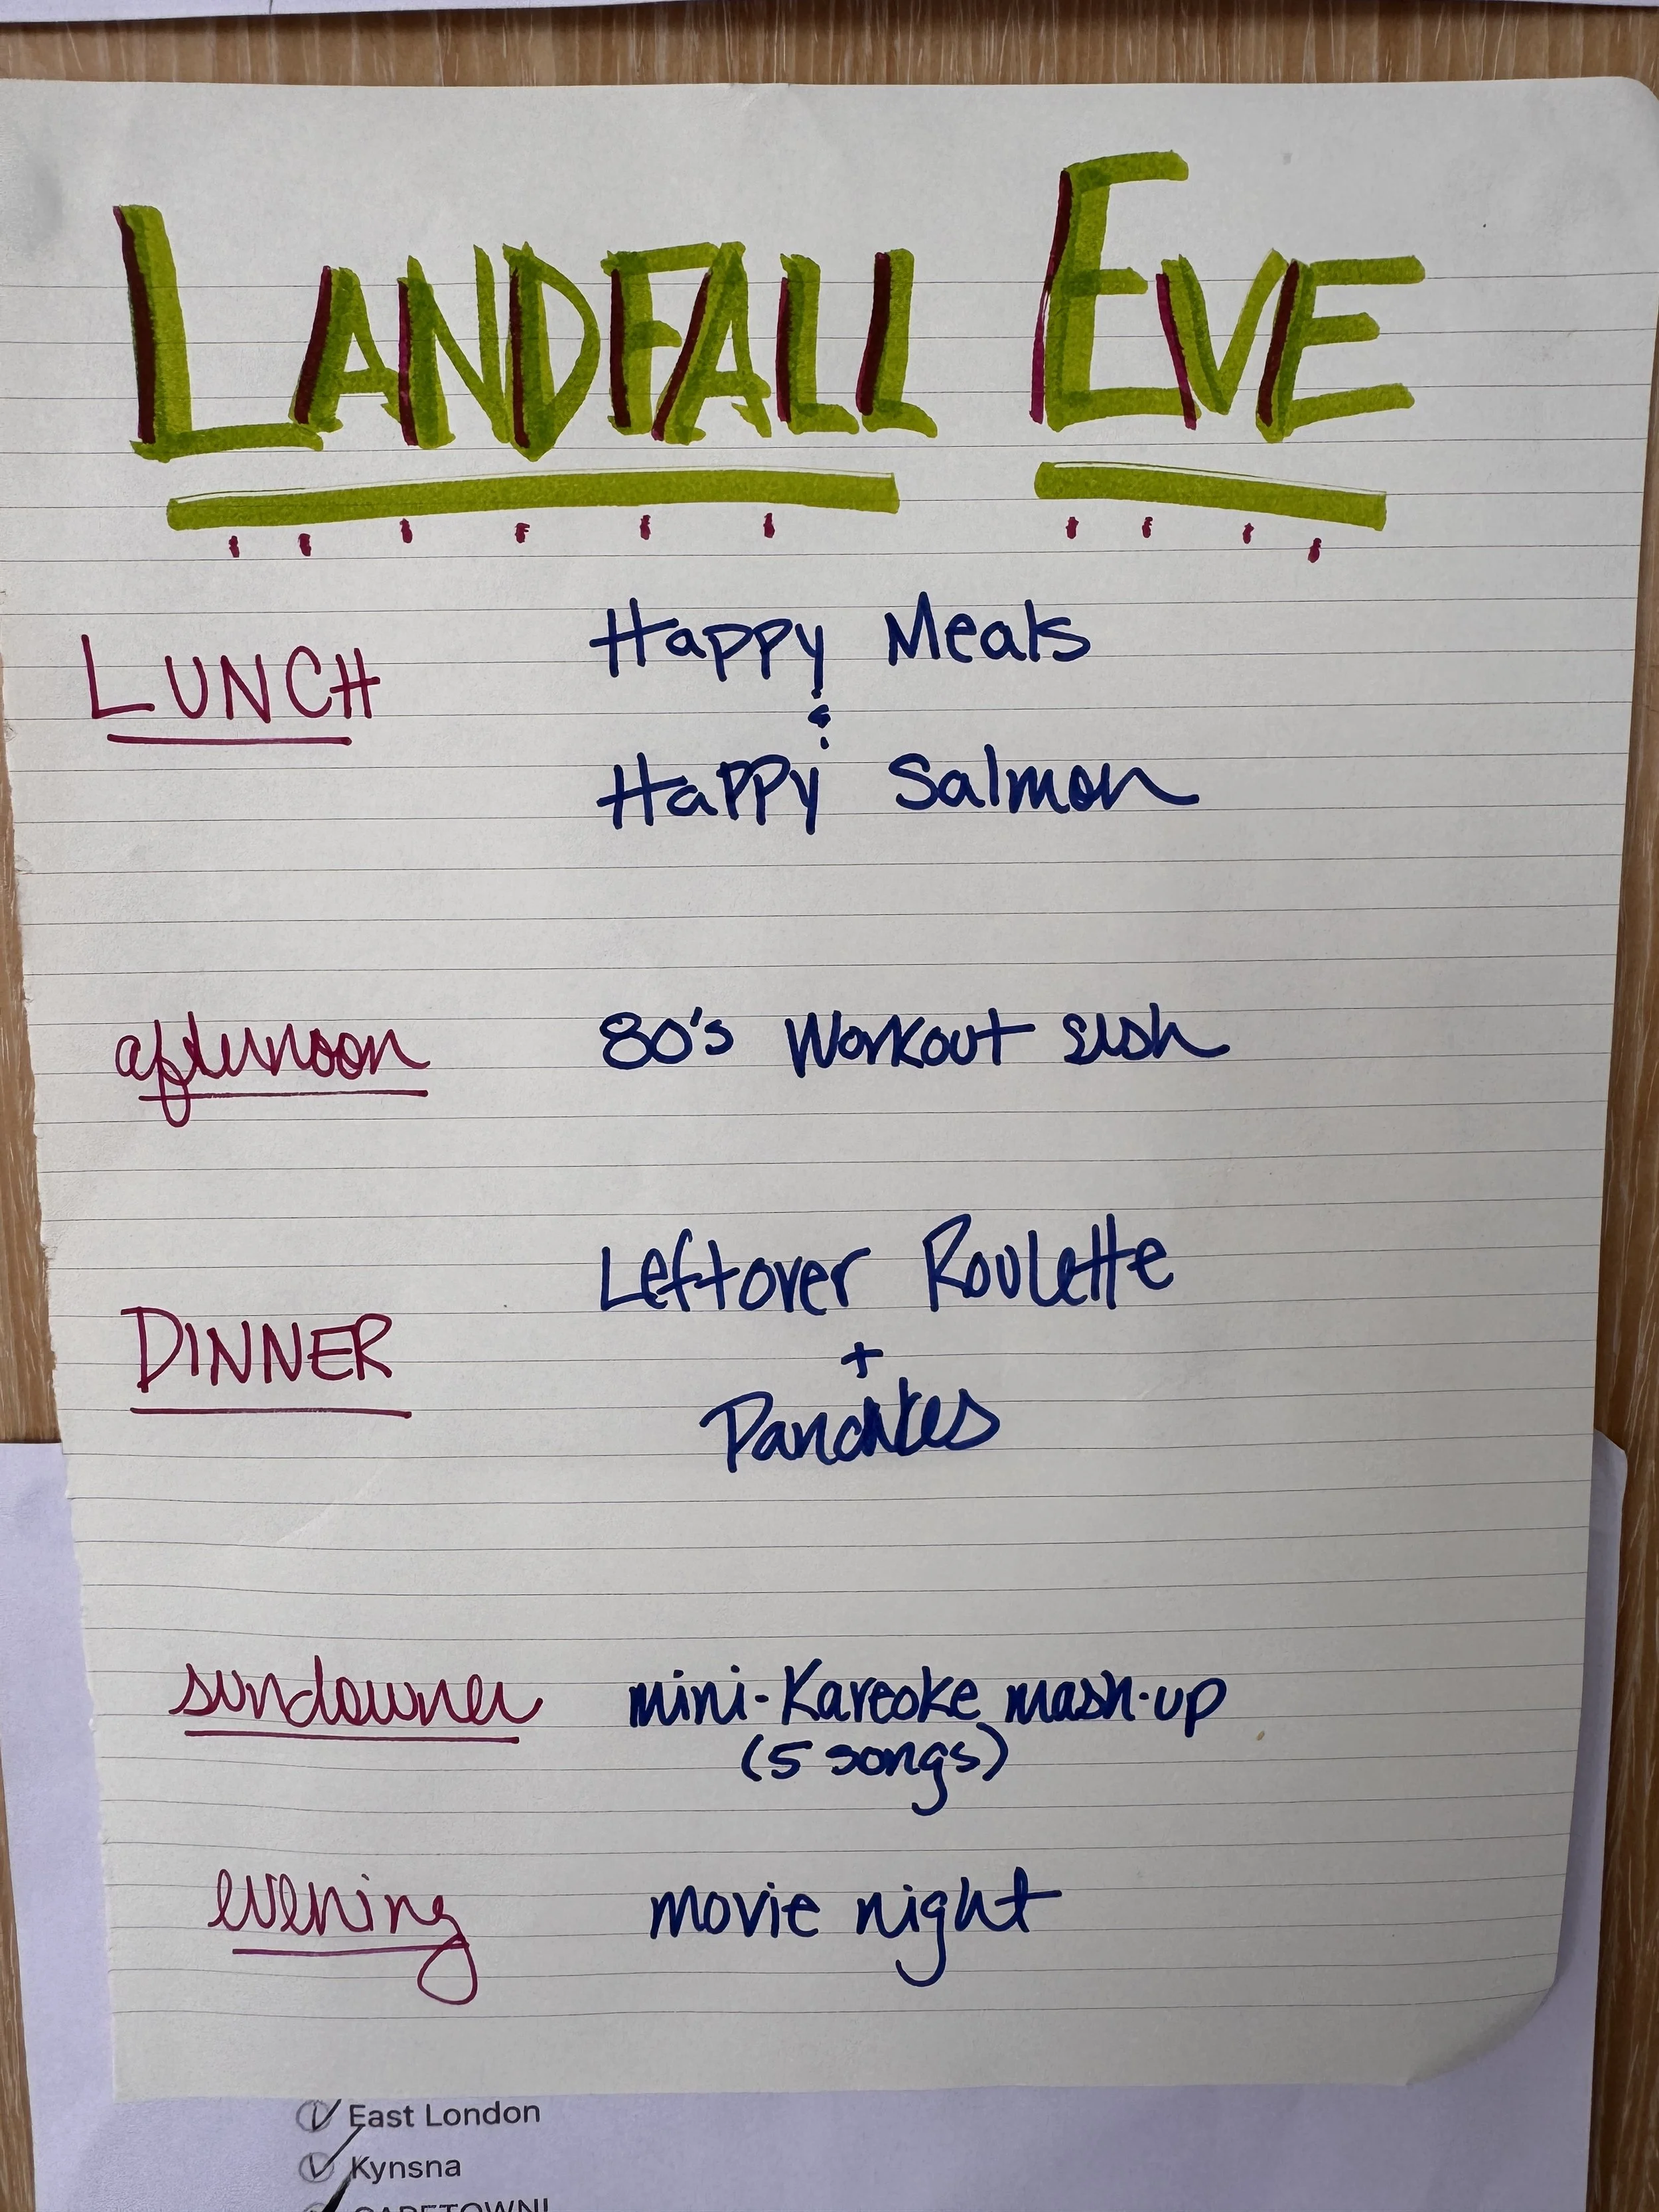 LANDFALL EVE
LUNCH
Happy Meals
&
Happy Salmon
afternoon
80's Workout sesh
DINNER
Leftover Roulette
+
Pancakes
sundowner
mini-Kareoke mash-up
(5 songs)
evening
movie night
East London
Kynsna
CAPETOWN!